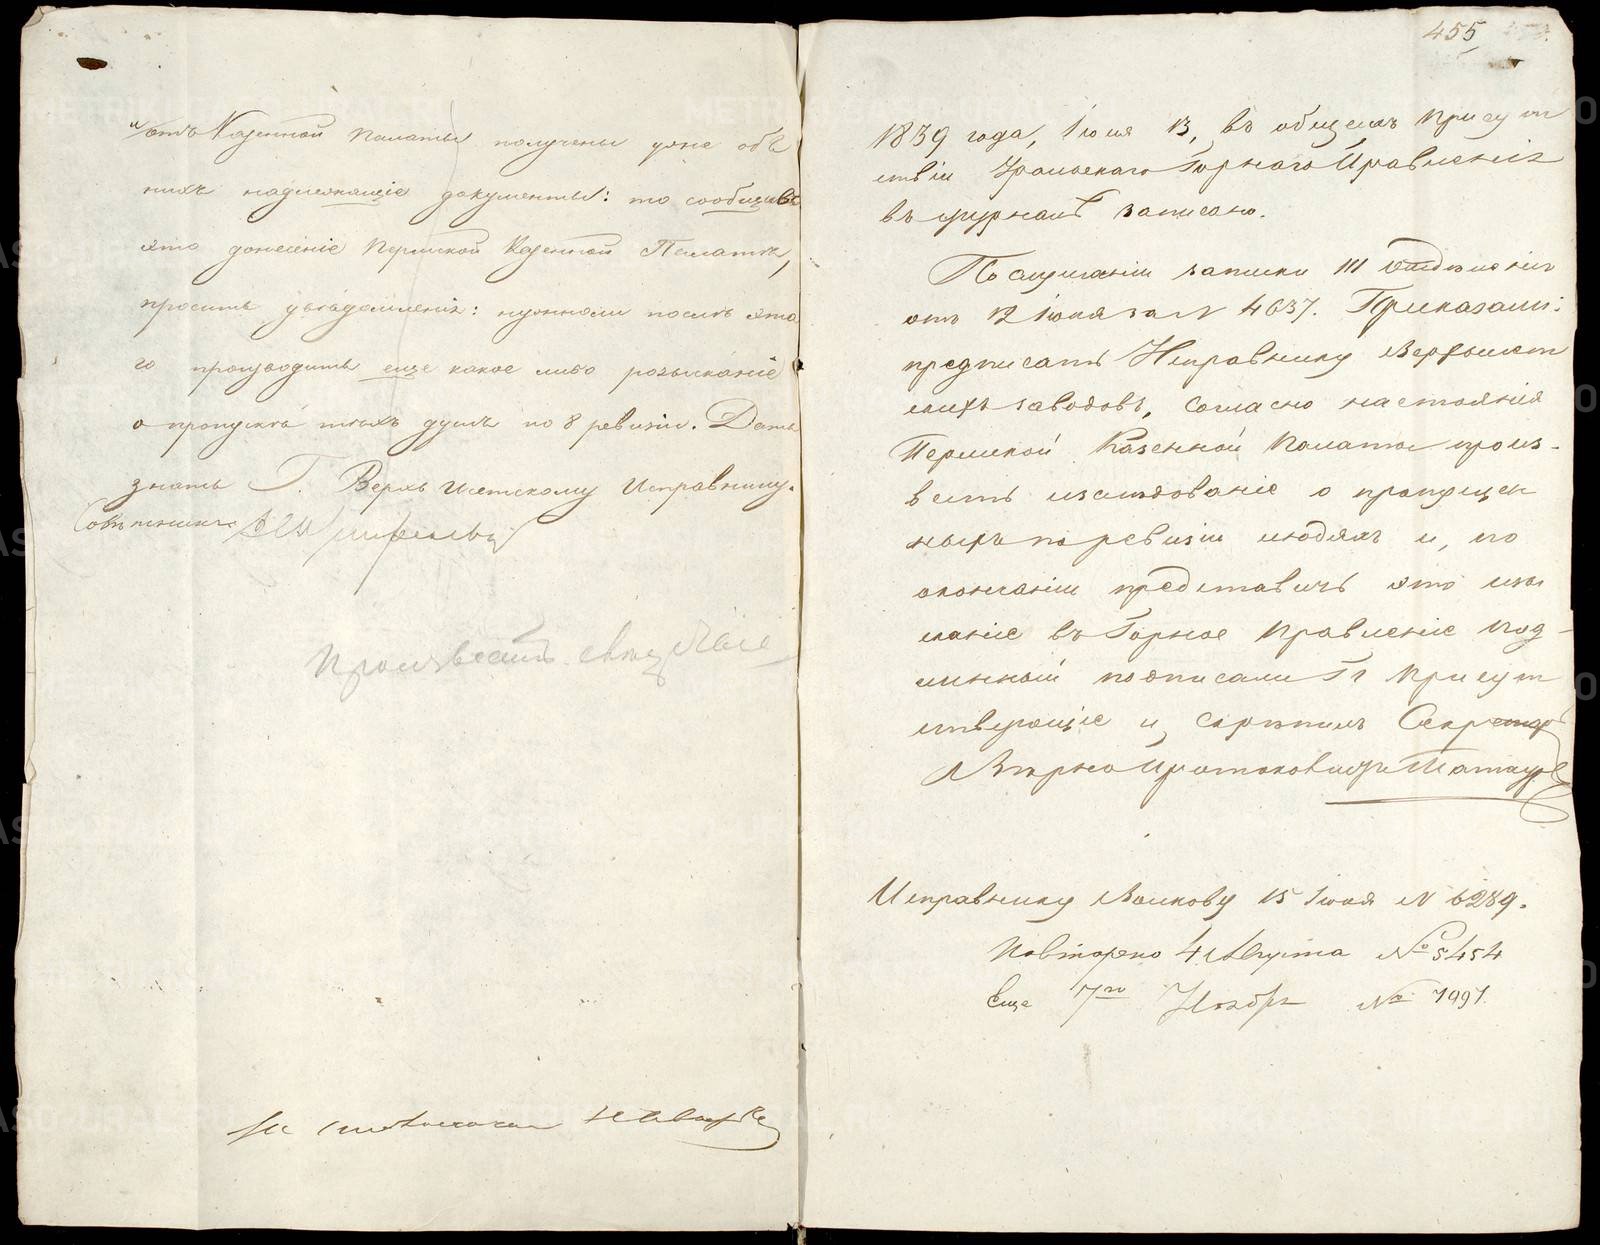 и отъ Казенной Палаты получены уже объ
нихъ надлежащіе документы: то сообщивъ
это донесеніе Пермской Казенной Палатѣ,
просить увѣдомленія: нужноли послѣ это
го производить еще какое либо розысканіе
о пропускѣ тѣхъ душъ по 8 ревизіи. Дать
знать Г. Верхъ Исетскому Исправнику.
Совѣтникъ
Произвесть
455
1839 года, Іюля 13, въ общемъ Присут
ствіи Уральскаго Горнаго Правленія
въ журналѣ записано.
По слушаніи записки III отдѣленія
отъ 12 Іюля за N 4637. Приказали:
предписать Исправнику Верхъисет
скихъ заводовъ, согласно настоянія
Пермской Казенной Палаты произ-
весть изслѣдованіе о пропущен
ныхъ по ревизіи людяхъ и, по
окончаніи представить это изы
сканіе въ Горное Правленіе Под-
линный подписали Гг Присут
ствующіе и скрѣпилъ Секретарь
Вѣрно Протоколистъ
Исправнику Волкову 15 Іюля N 6289.
Повторено 4 Августа № 5454
Еще 7го Ноября № 7997.